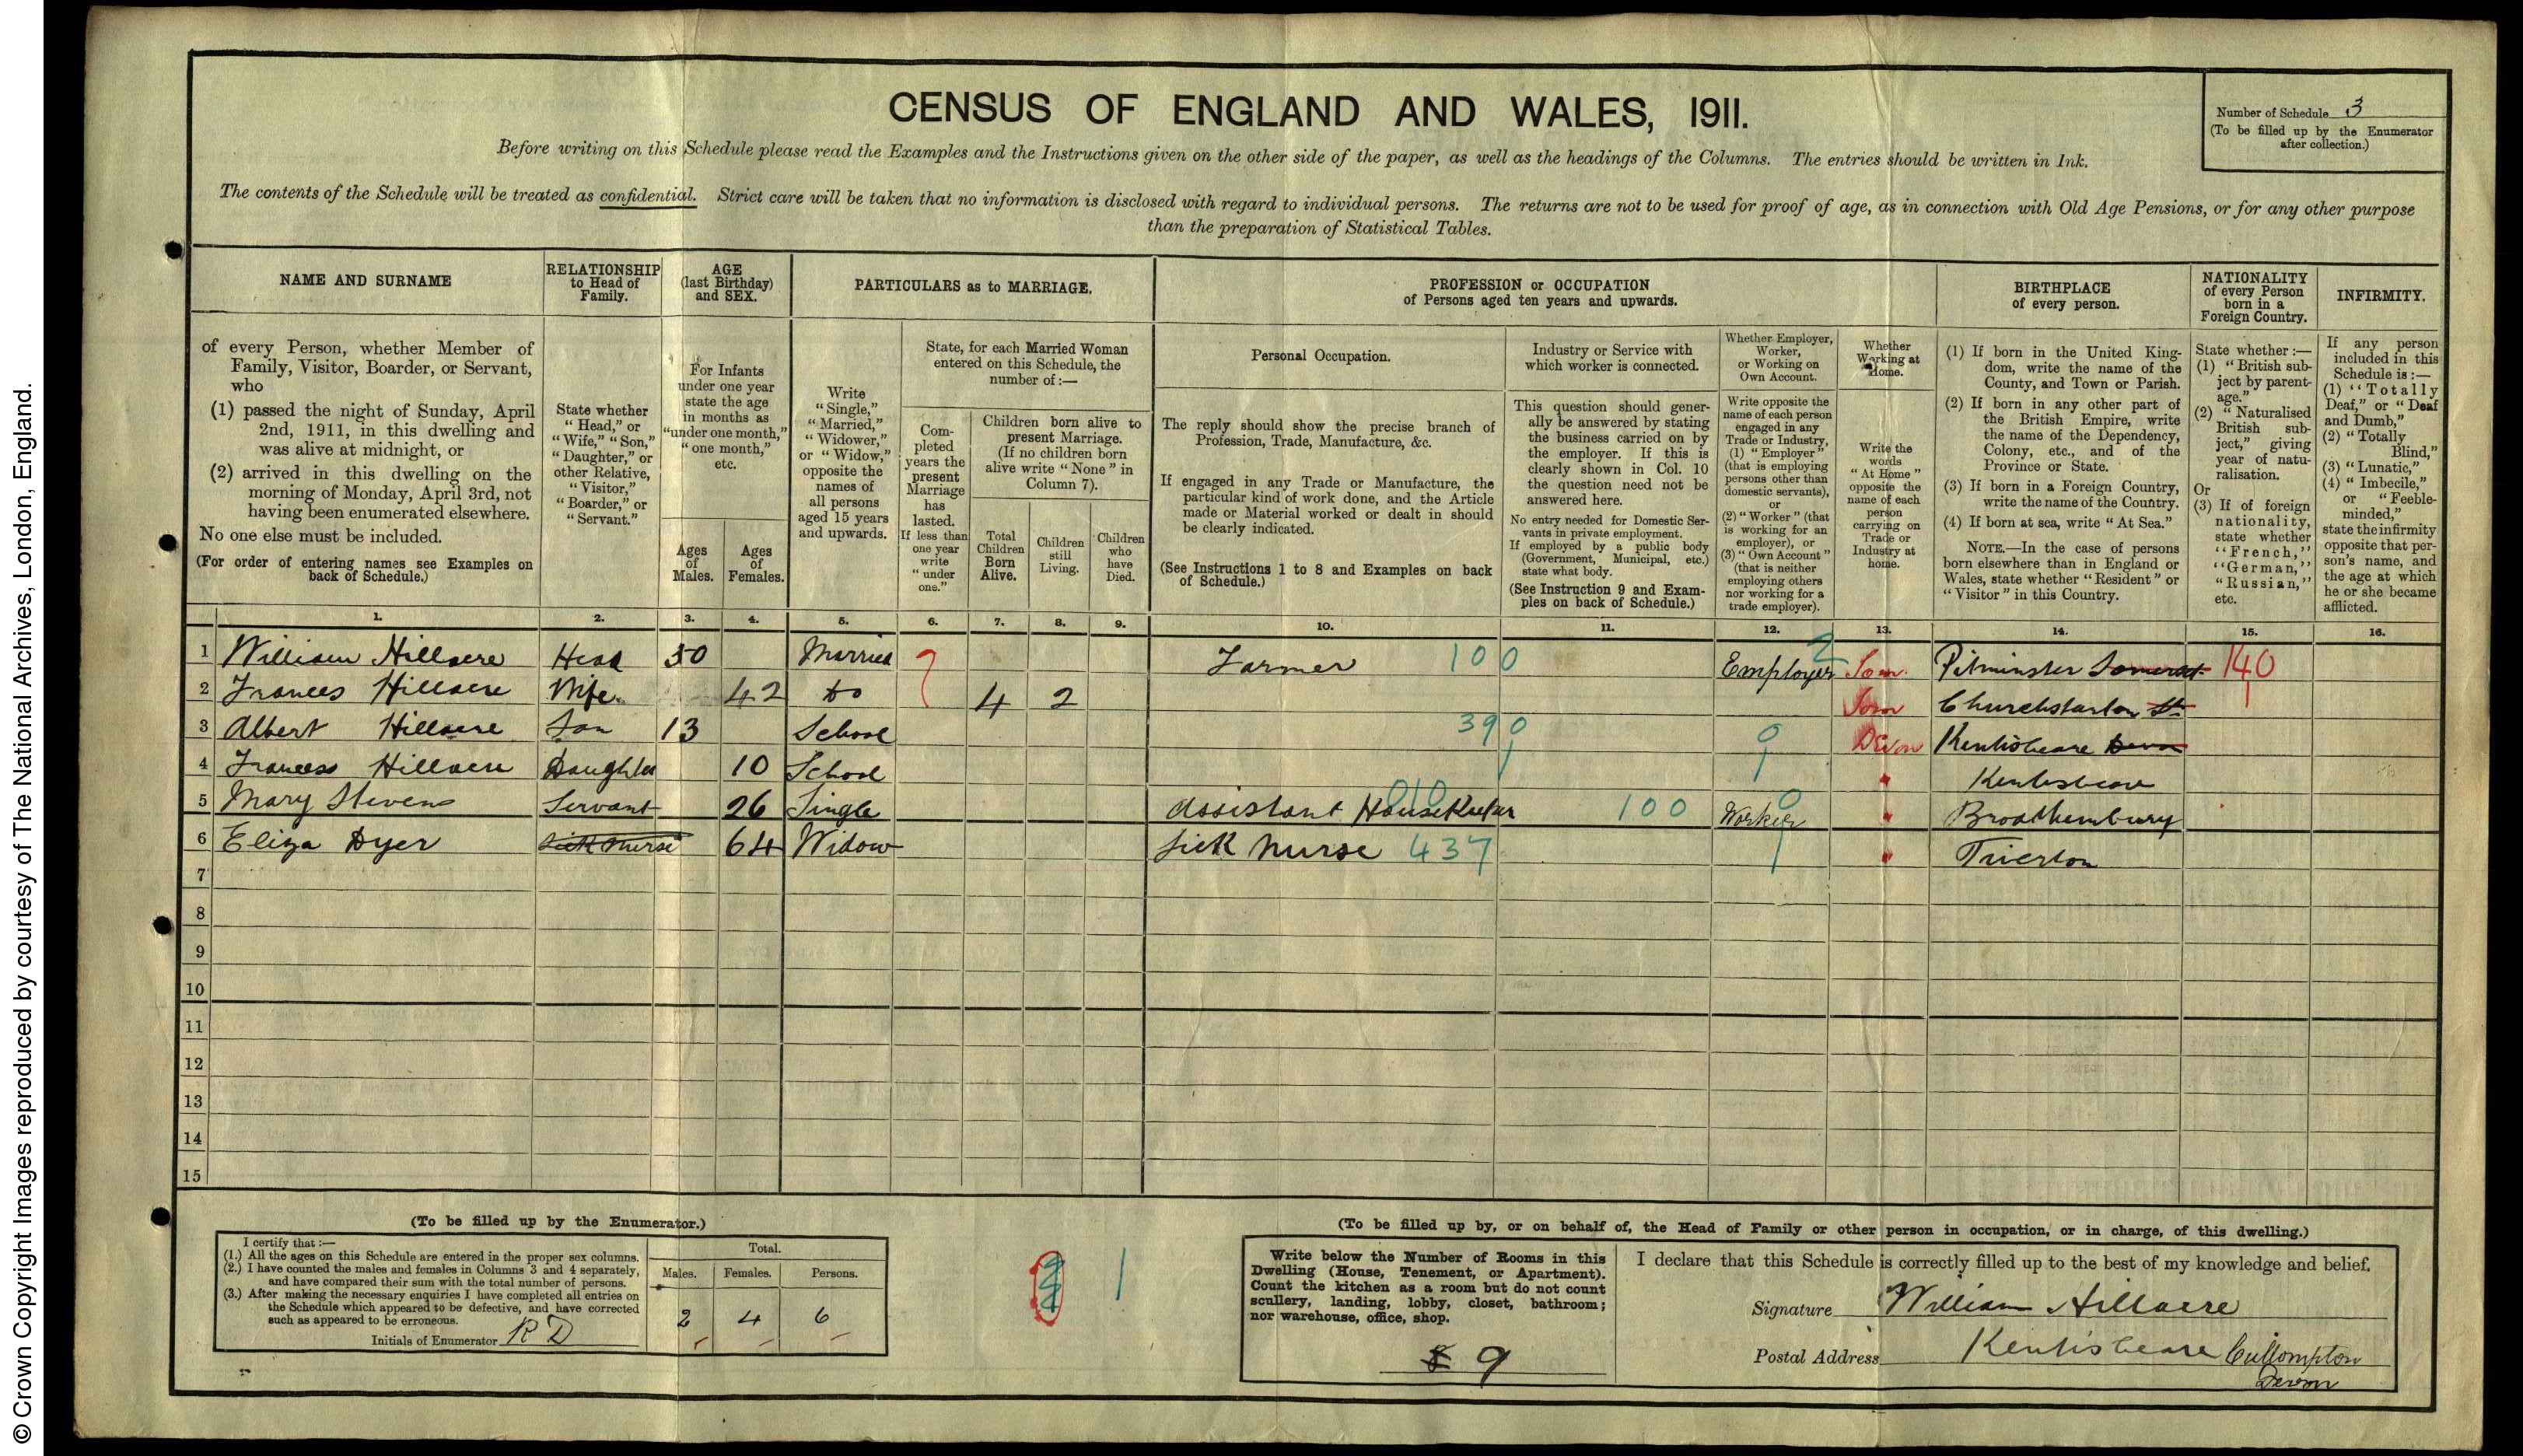 © Crown Copyright Images reproduced by courtesy of The National Archives, London, England.
CENSUS OF ENGLAND AND WALES, 1911.
Number of Schedule 3
(To be filled up by the Enumerator
after collection.)
Before writing on this Schedule please read the Examples and the Instructions given on the other side of the paper, as well as the headings of the Columns. The entries should be written in Ink.
The contents of the Schedule will be treated as confidential. Strict care will be taken that no information is disclosed with regard to individual persons. The returns are not to be used for proof of age, as in connection with Old Age Pensions, or for any other purpose
than the preparation of Statistical Tables.
NAME AND SURNAME
of every Person, whether Member of
Family, Visitor, Boarder, or Servant,
who
(1) passed the night of Sunday, April
2nd, 1911, in this dwelling and
was alive at midnight, or
(2) arrived in this dwelling on the
morning of Monday, April 3rd, not
having been enumerated elsewhere.
No one else must be included.
(For order of entering names see Examples on
back of Schedule.)
RELATIONSHIP
to Head of
Family.
State whether
"Head," or
"Wife," "Son,"
"Daughter," or
other Relative,
"Visitor,"
"Boarder," or
"Servant."
AGE
(last Birthday)
and SEX.
For Infants
under one year
state the age
in months as
"under one month,"
"one month,"
etc.
Ages
of
Males.
Ages
of
Females.
PARTICULARS as to MARRIAGE.
Write
"Single,"
"Married,"
"Widower,"
or "Widow,"
opposite the
names of
all persons
aged 15 years
and upwards.
State, for each Married Woman
entered on this Schedule, the
number of:—
Com-
pleted
years the
present
Marriage
has
lasted.
If less than
one year
write
"under
one."
Children born alive to
present Marriage.
(If no children born
alive write "None" in
Column 7).
Total
Children
Born
Alive.
Children
still
Living.
Children
who
have
Died.
PROFESSION or OCCUPATION
of Persons aged ten years and upwards.
Personal Occupation.
The reply should show the precise branch of
Profession, Trade, Manufacture, &c.
If engaged in any Trade or Manufacture, the
particular kind of work done, and the Article
made or Material worked or dealt in should
be clearly indicated.
(See Instructions 1 to 8 and Examples on back
of Schedule.)
Industry or Service with
which worker is connected.
This question should gener-
ally be answered by stating
the business carried on by
the employer. If this is
clearly shown in Col. 10
the question need not be
answered here.
No entry needed for Domestic Ser-
vants in private employment.
If employed by a public body
(Government, Municipal, etc.)
state what body.
(See Instruction 9 and Exam-
ples on back of Schedule.)
Whether Employer,
Worker,
or Working on
Own Account.
Write opposite the
name of each person
engaged in any
Trade or Industry,
(1) "Employer"
(that is employing
persons other than
domestic servants),
or
(2) "Worker" (that
is working for an
employer), or
(3) "Own Account"
(that is neither
employing others
nor working for a
trade employer).
Whether
Working at
Home.
Write the
words
"At Home"
opposite the
name of each
person
carrying on
Trade or
Industry at
home.
BIRTHPLACE
of every person.
(1) If born in the United King-
dom, write the name of the
County, and Town or Parish.
(2) If born in any other part of
the British Empire, write
the name of the Dependency,
Colony, etc., and of the
Province or State.
(3) If born in a Foreign Country,
write the name of the Country.
(4) If born at sea, write "At Sea."
NOTE.—In the case of persons
born elsewhere than in England or
Wales, state whether "Resident" or
"Visitor" in this Country.
NATIONALITY
of every Person
born in a
Foreign Country.
State whether:—
(1) "British sub-
ject by parent-
age."
(2) "Naturalised
British sub-
ject," giving
year of natu-
ralisation.
Or
(3) If of foreign
nationality,
state whether
"French,"
"German,"
"Russian,"
etc.
INFIRMITY.
If any person
included in this
Schedule is:—
(1) "Totally
Deaf," or "Deaf
and Dumb,"
(2) "Totally
Blind,"
(3) "Lunatic,"
(4) "Imbecile,"
or "Feeble-
minded,"
state the infirmity
opposite that per-
son's name, and
the age at which
he or she became
afflicted.
1. 2. 3. 4. 5. 6. 7. 8. 9. 10. 11. 12. 13. 14. 15. 16.
1 William Hillacre Head 50 Married Farmer 100 Employer 2 Som. Pitminster Somerset 140
2 Frances Hillacre Wife 42 do 4 2 Som Churchstanton
3 Albert Hillacre Son 13 School 390 0 Devon Kentisbeare Devon
4 Francess Hillacre Daughter 10 School Kentisbeare
5 Mary Stevens Servant 26 Single Assistant HouseKeeper 010 100 Worker 0 Broadhembury
6 Eliza Dyer Sick Nurse 64 Widow Sick Nurse 437 Tiverton
7
8
9
10
11
12
13
14
15
(To be filled up by the Enumerator.)
I certify that:—
(1.) All the ages on this Schedule are entered in the proper sex columns.
(2.) I have counted the males and females in Columns 3 and 4 separately,
and have compared their sum with the total number of persons.
(3.) After making the necessary enquiries I have completed all entries on
the Schedule which appeared to be defective, and have corrected
such as appeared to be erroneous.
Initials of Enumerator R D
Total.
Males. Females. Persons.
2 4 6
1
(To be filled up by, or on behalf of, the Head of Family or other person in occupation, or in charge, of this dwelling.)
Write below the Number of Rooms in this
Dwelling (House, Tenement, or Apartment).
Count the kitchen as a room but do not count
scullery, landing, lobby, closet, bathroom;
nor warehouse, office, shop.
8 9
I declare that this Schedule is correctly filled up to the best of my knowledge and belief.
Signature William Hillacre
Postal Address Kentisbeare Cullompton
Devon